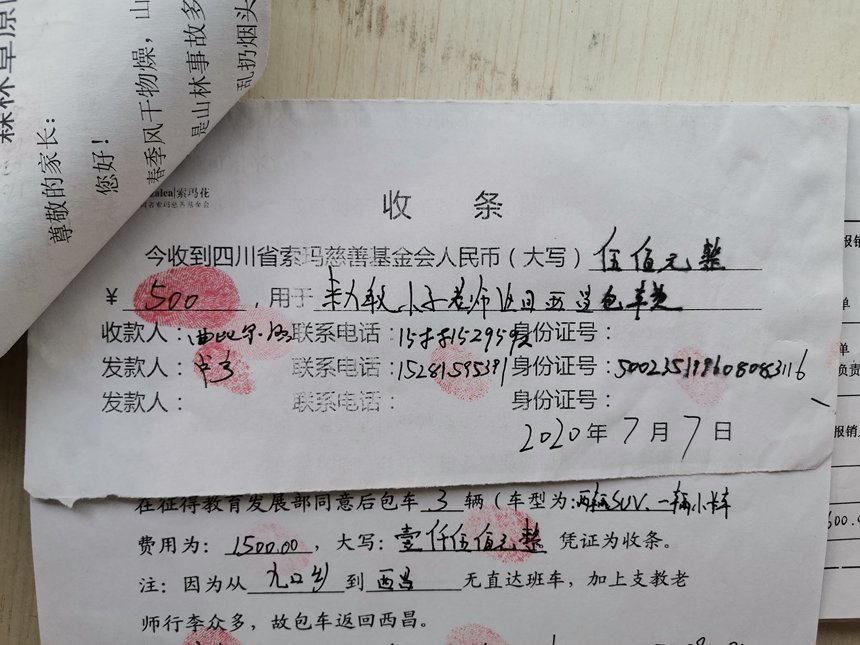 森林草原
尊敬的家长：
您好！
春季风干物燥，山
是山林事故多
乱扔烟头
alea|索玛花
川省索玛慈善基金会
收 条
今收到四川省索玛慈善基金会人民币（大写）伍佰元整
¥ 500 ，用于 老师返回西昌包车费
收款人： 联系电话： 身份证号：
发款人： 联系电话：15281595391 身份证号：500235199608083116
发款人： 联系电话： 身份证号：
2020年7月7日
在征得教育发展部同意后包车 3 辆（车型为：两辆SUV、一辆小卡车
费用为： 1500.00 ，大写：壹仟伍佰元整。凭证为收条。
注：因为从 九口乡 到 西昌 无直达班车，加上支教老
师行李众多，故包车返回西昌。
报销
单
负责
报销人